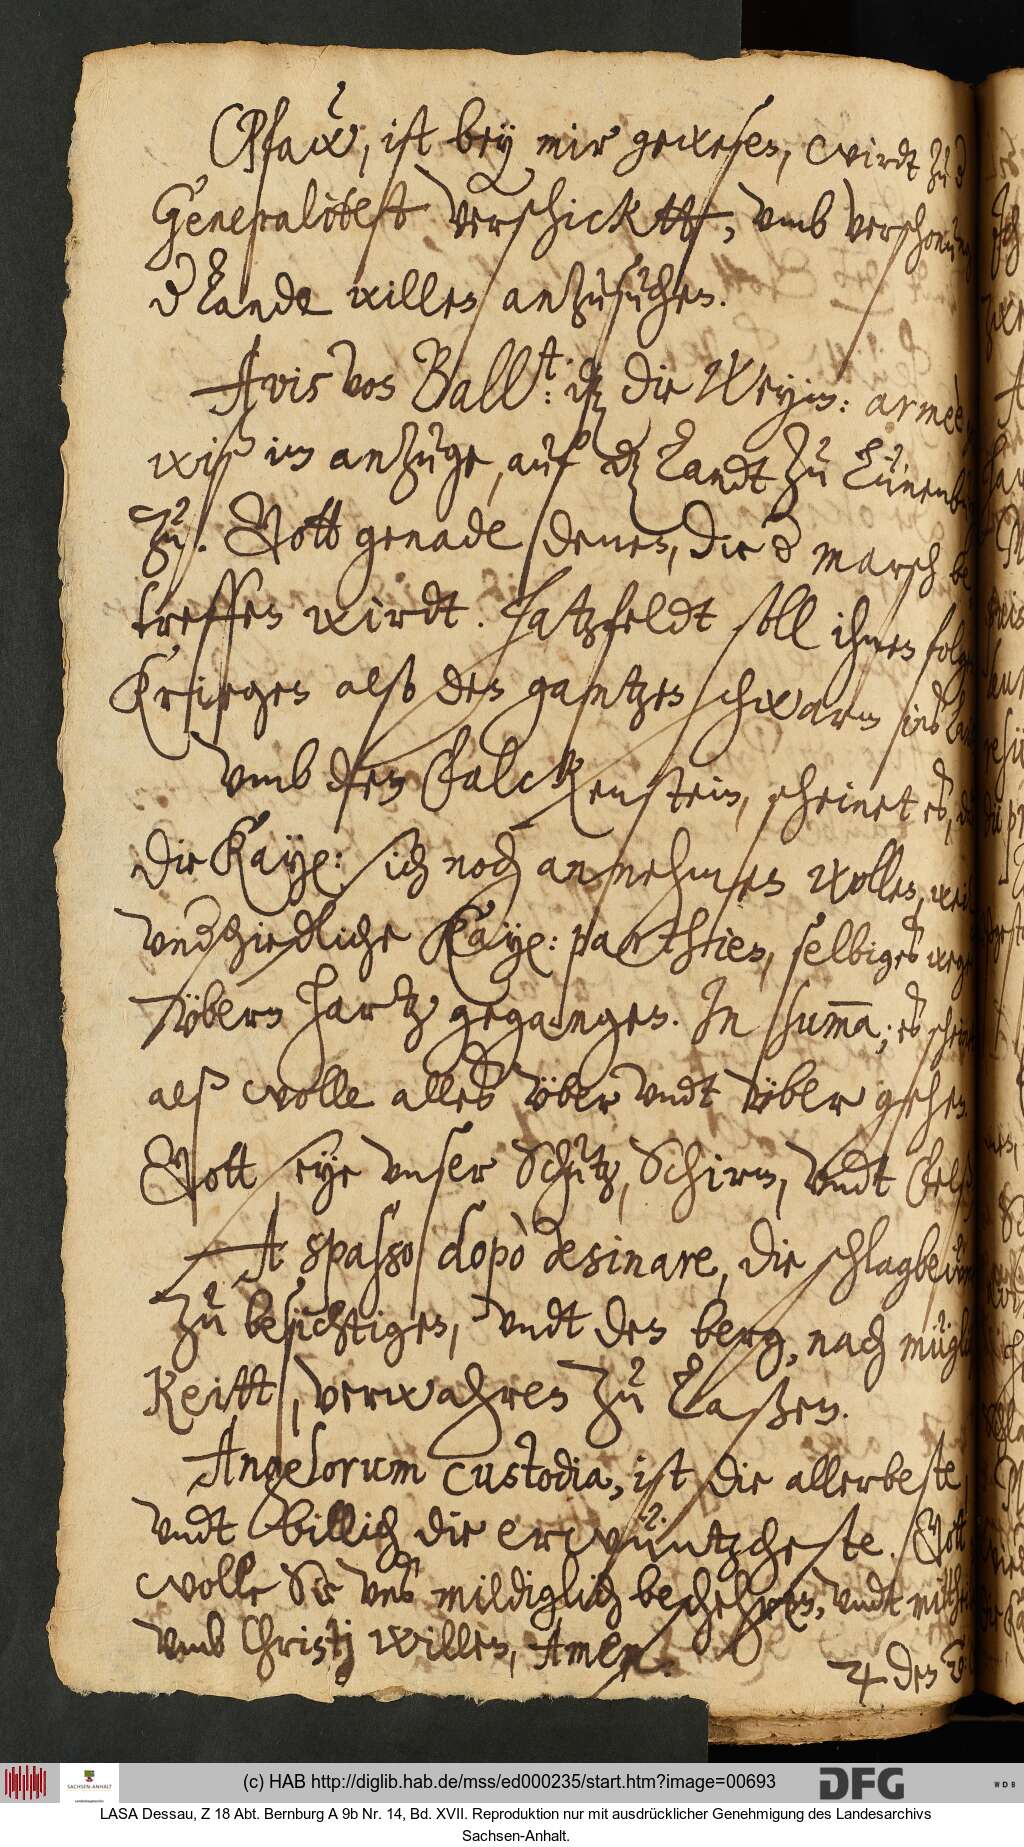 Pfaw, ist bey mir gewesen, wirdt zu d
Generalitet verschicktt, vmb verschonung
d Lande willen anzusuchen.
Avis von Ball:t dz die Weym: armèe
gewiß im anzuge, auf dz Landt zu Lünenb
zu. Gott genade denen, die d march be
treffen wirdt. Hatzfeldt soll ihnen folge
Kriegen also den gantzen schwarm ins
vmb den Falckenstein, scheinet es,
die Kay: sich noch annehmen wollen, weil
vnd schiedliche Kay: parthien, selbiges wege
vbern Hartz gegangen. In summa; es schein
alß wolle alles vber vndt vber gehen.
Gott seye vnser Schutz, Schirm, vndt Felß
A spasso dopò desinare, die schlagbe
zu besichtigen, vndt den berg, nach mügl
keitt, verwahren zu laßen.
Angelorum custodia, ist die allerbeste
vndt billich die erwüntzscheste. Gott
wolle Sie vns mildiglich beschehren, vndt mitthei
vmb Christj willen, Amen.
♃ den
(c) HAB http://diglib.hab.de/mss/ed000235/start.htm?image=00693
DFG
WDB
SACHSEN-ANHALT
LASA Dessau, Z 18 Abt. Bernburg A 9b Nr. 14, Bd. XVII. Reproduktion nur mit ausdrücklicher Genehmigung des Landesarchivs
Sachsen-Anhalt.